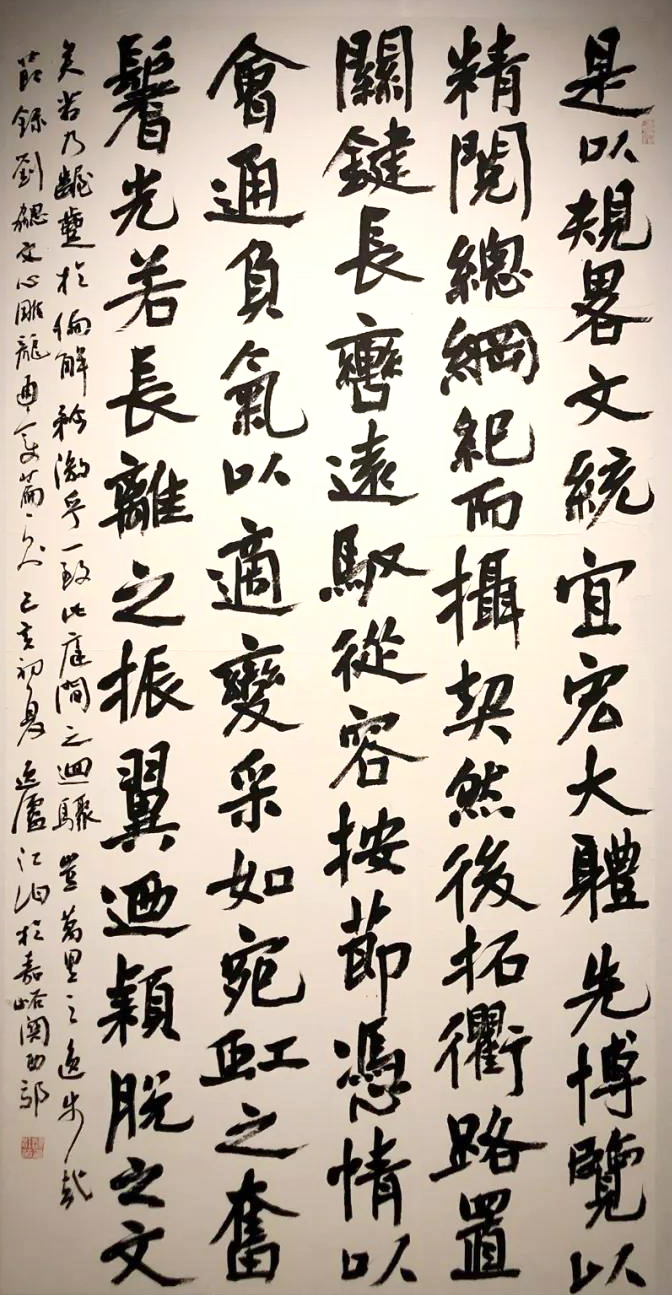 是以規畧文統宜宏大體先博覽以
精閱總綱紀而攝契然後拓衢路置
關鍵長轡遠馭從容按節憑情以
會通負氣以適變采如宛虹之奮
鬐光若長離之振翼迺穎脫之文
矣若乃齷齪於偏解矜激乎一致此庭間之迴驟豈萬里之逸步哉
節錄劉勰文心雕龍通變篇 己亥初夏 廬江 於嘉峪關